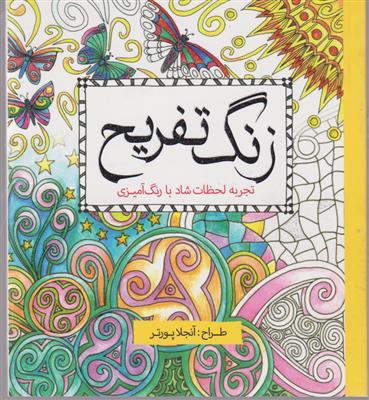 زنگ تفریح
تجربه لحظات شاد با رنگ‌آمیزی
طراح: آنجلا پورتر